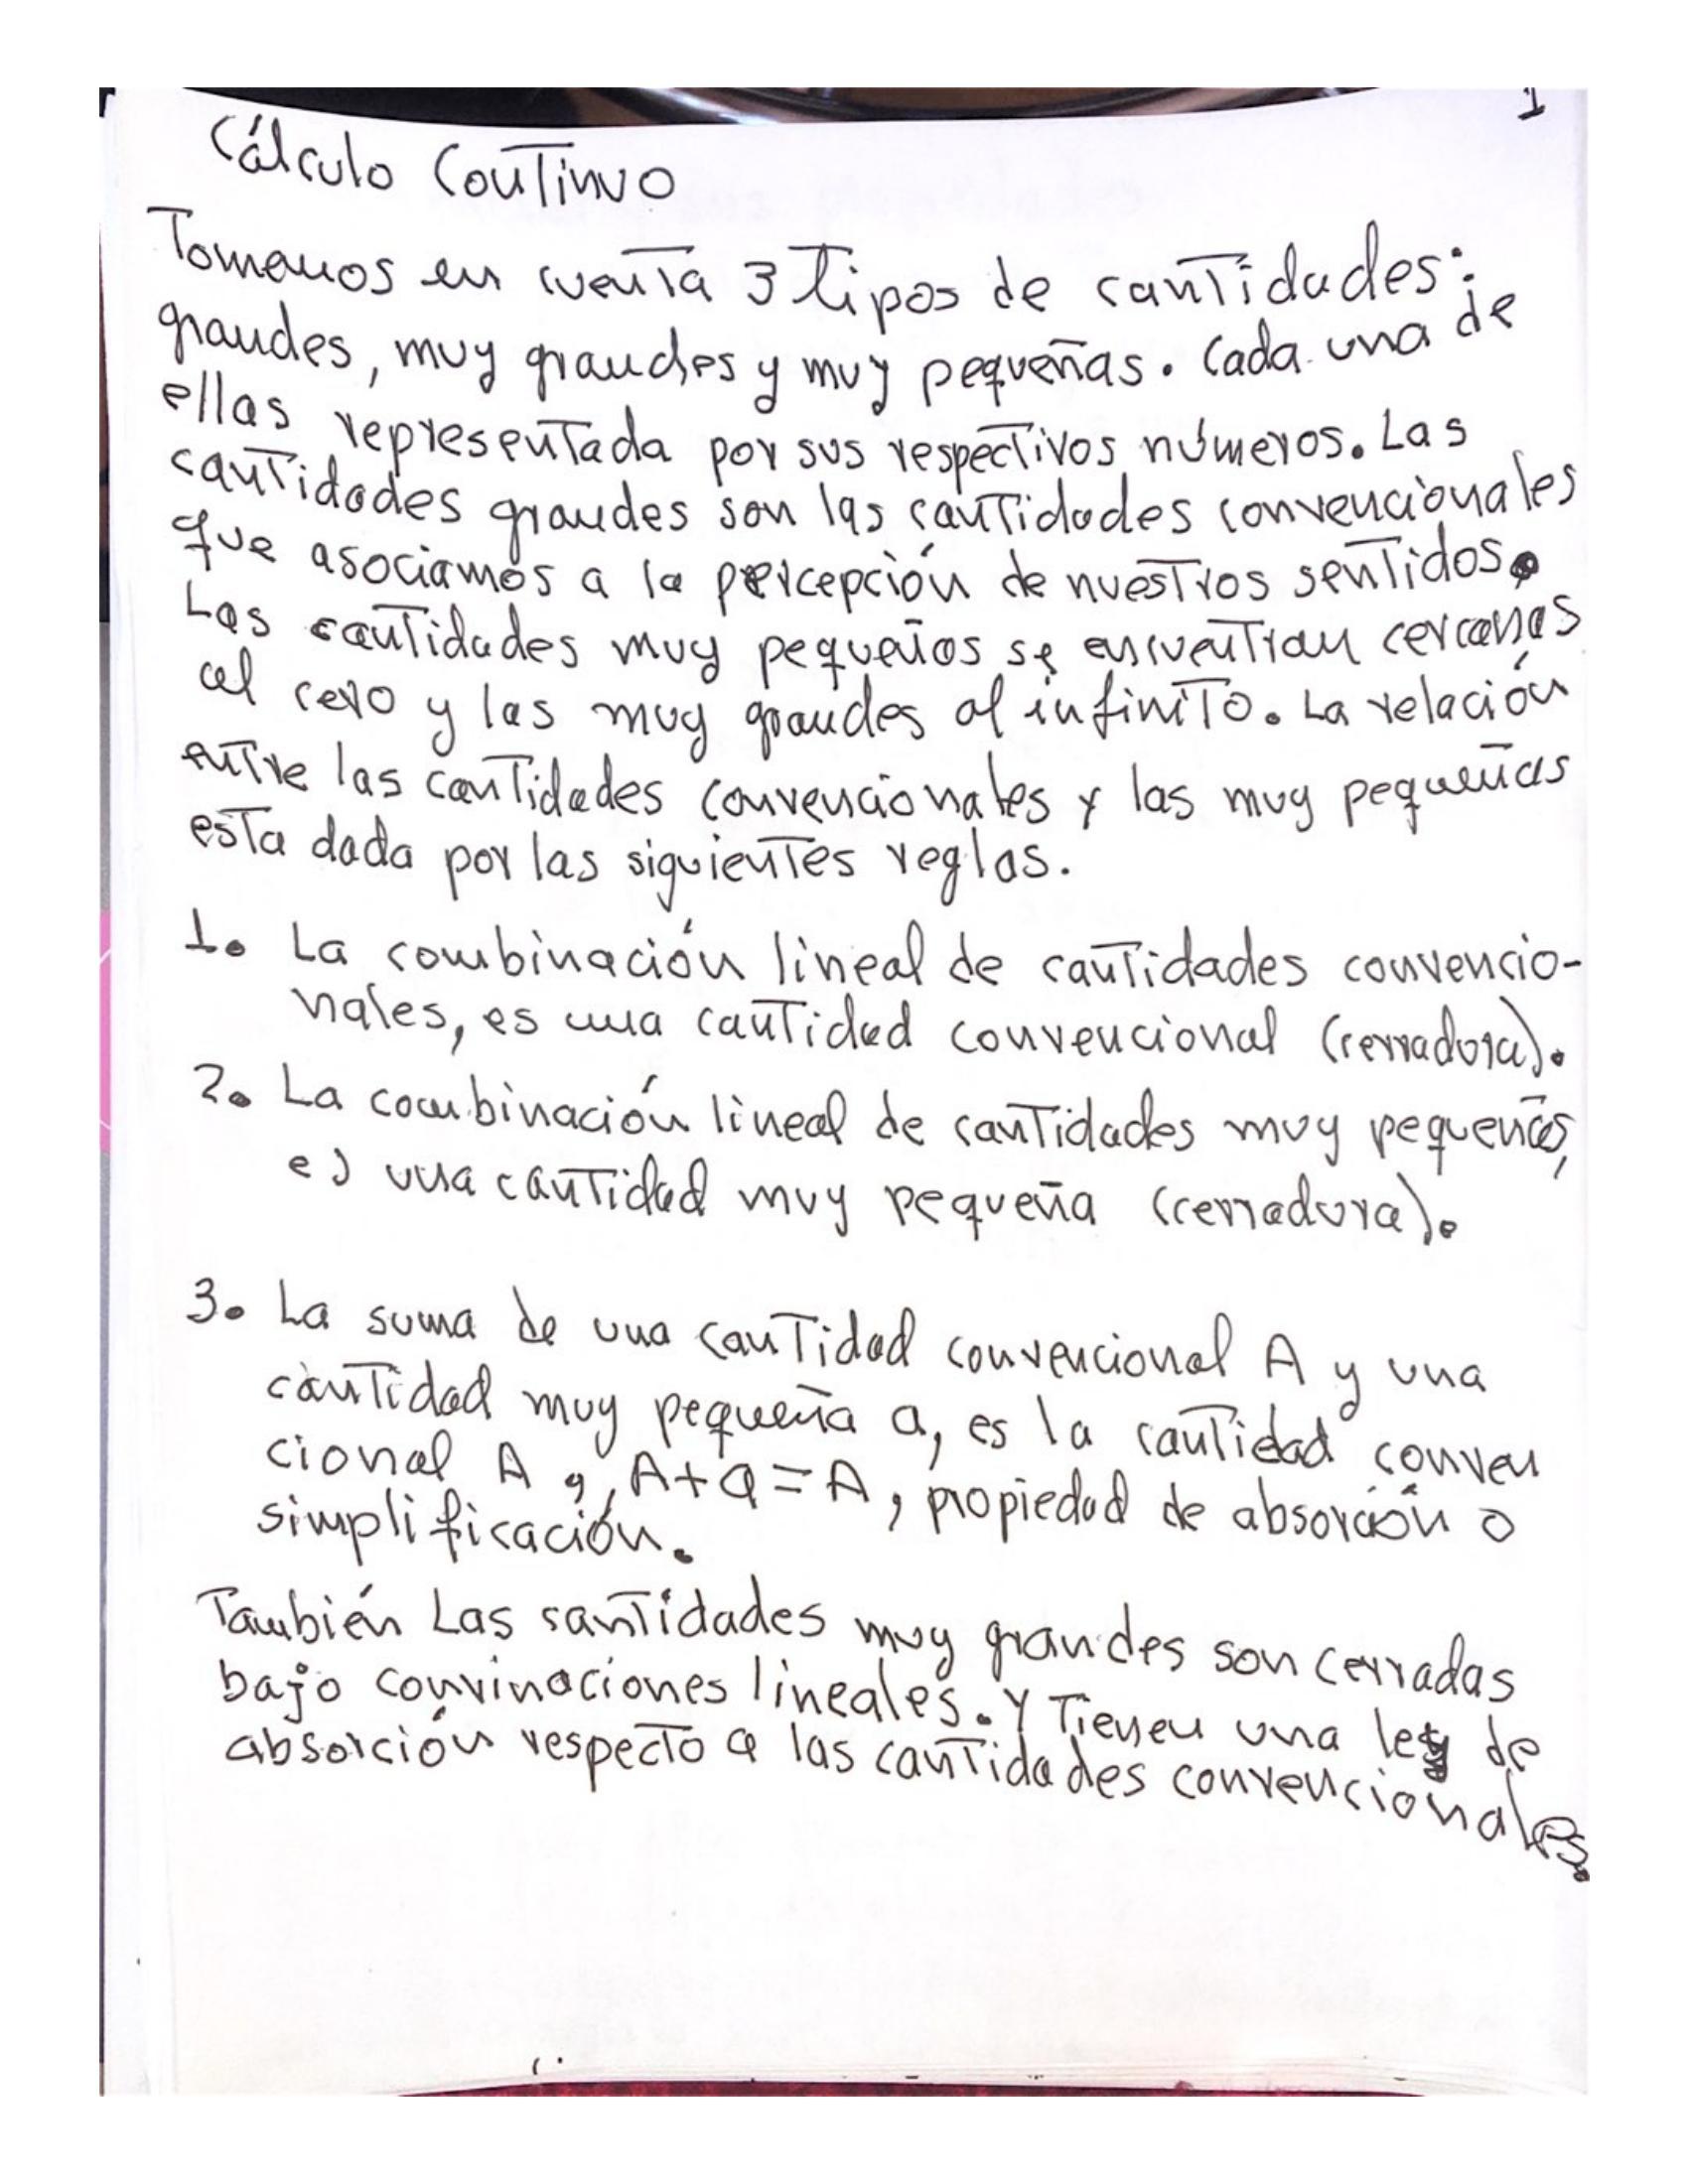 1
Cálculo Continuo
Tomemos en cuenta 3 tipos de cantidades:
grandes, muy grandes y muy pequeñas. Cada una de
ellas representada por sus respectivos números. Las
cantidades grandes son las cantidades convencionales
que asociamos a la percepción de nuestros sentidos.
Las cantidades muy pequeñas se encuentran cercanas
al cero y las muy grandes al infinito. La relación
entre las cantidades convencionales y las muy pequeñas
esta dada por las siguientes reglas.
1. La combinación lineal de cantidades convencio-
nales, es una cantidad convencional (cerradura).
2. La combinación lineal de cantidades muy pequeñas,
es una cantidad muy pequeña (cerradura).
3. La suma de una cantidad convencional A y una
cantidad muy pequeña a, es la cantidad conven
cional A, A+a=A, propiedad de absorción o
simplificación.
También Las santidades muy grandes son cerradas
bajo convinaciones lineales. Y Tienen una ley de
absorción respecto a las cantidades convencionales.